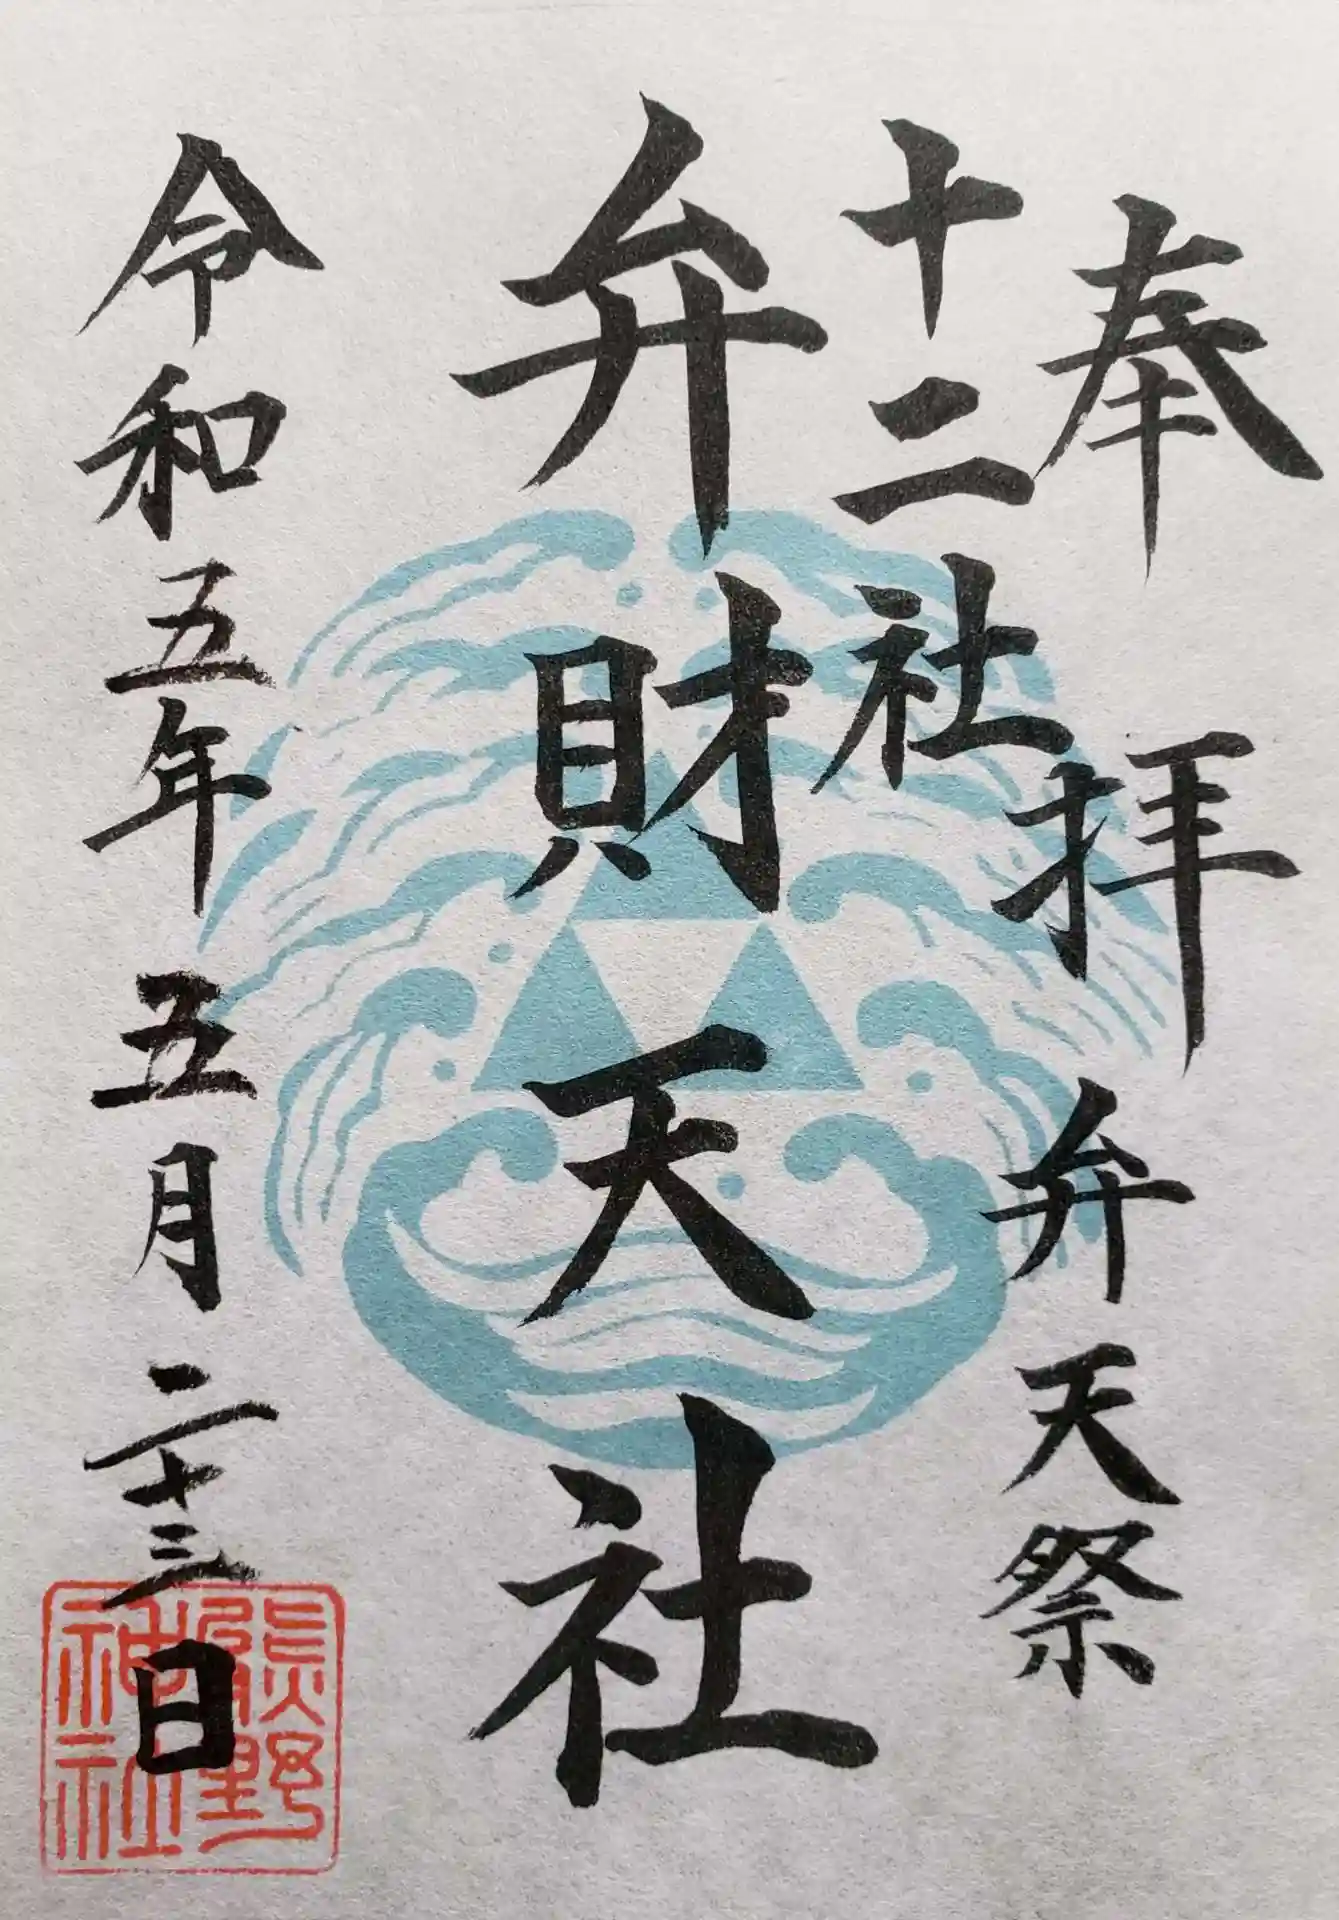 奉拝 弁天祭
十二社
弁財天社
令和五年 五月二十三日
熊野
神社